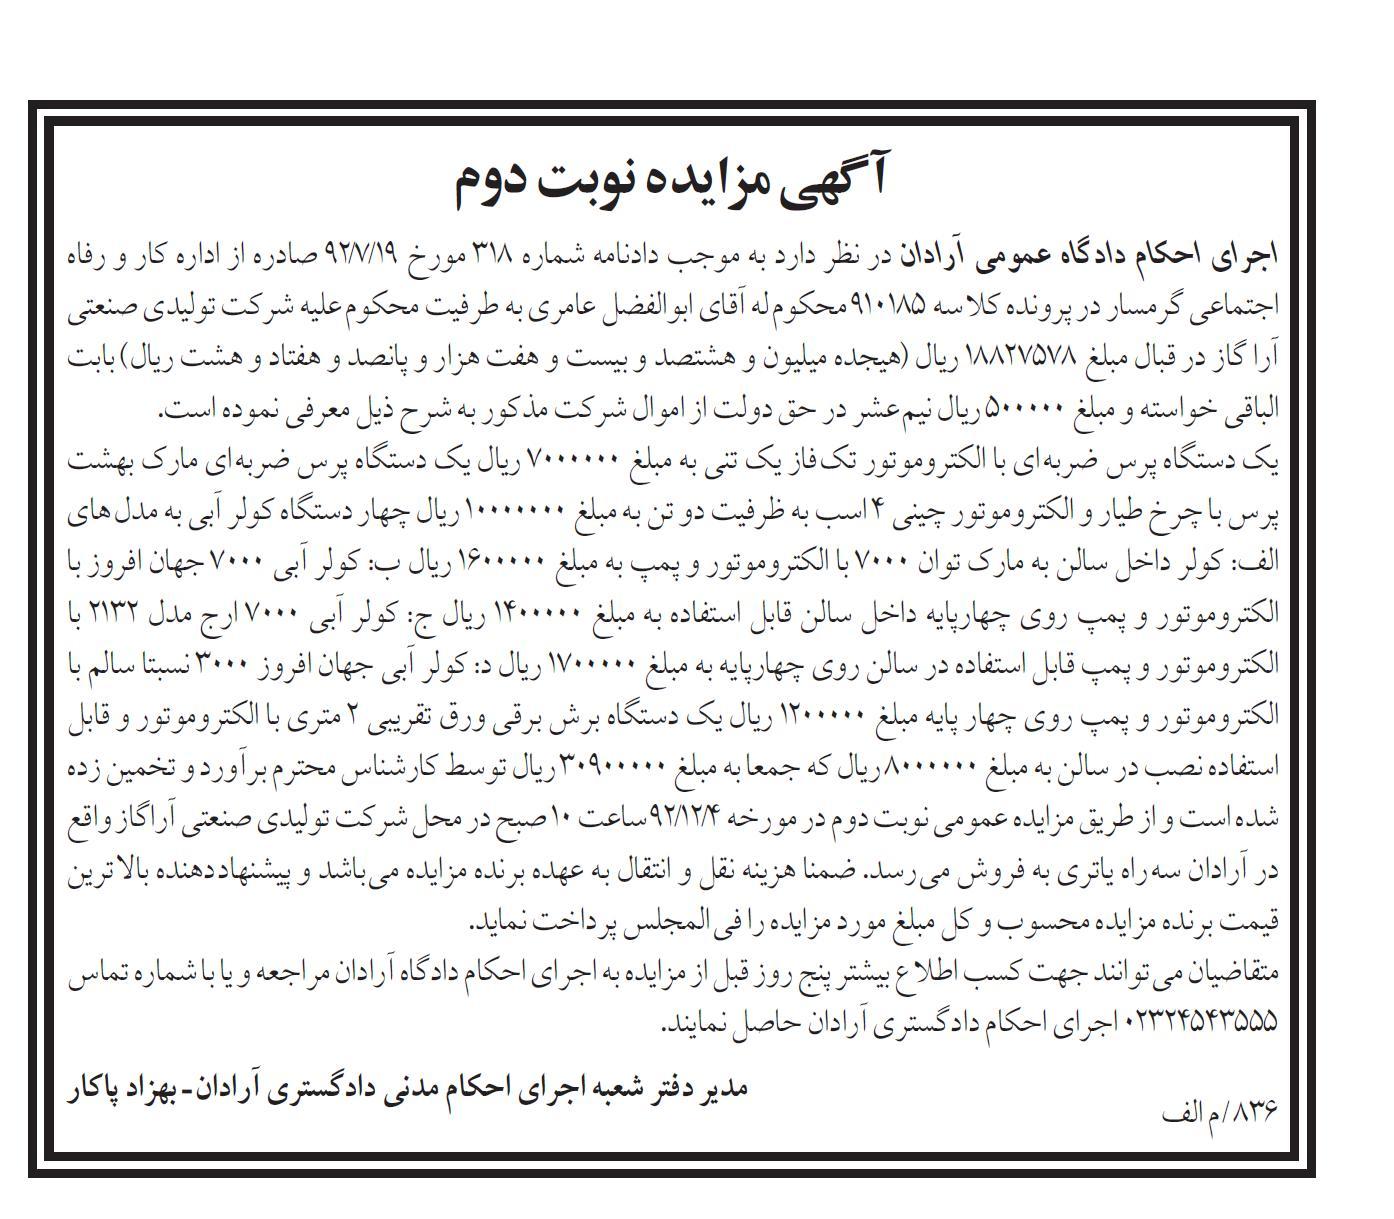 آگهی مزایده نوبت دوم
اجرای احکام دادگاه عمومی آرادان در نظر دارد به موجب دادنامه شماره ۳۱۸ مورخ ۹۲/۷/۱۹ صادره از اداره کار و رفاه
اجتماعی گرمسار در پرونده کلاسه ۹۱۰۱۸۵ محکوم‌له آقای ابوالفضل عامری به طرفیت محکوم‌علیه شرکت تولیدی صنعتی
آرا گاز در قبال مبلغ ۱۸۸۲۷۵۷۸ ریال (هیجده میلیون و هشتصد و بیست و هفت هزار و پانصد و هفتاد و هشت ریال) بابت
الباقی خواسته و مبلغ ۵۰۰۰۰۰ ریال نیم‌عشر در حق دولت از اموال شرکت مذکور به شرح ذیل معرفی نموده است.
یک دستگاه پرس ضربه‌ای با الکتروموتور تک‌فاز یک تنی به مبلغ ۷۰۰۰۰۰۰ ریال یک دستگاه پرس ضربه‌ای مارک بهشت
پرس با چرخ طیار و الکتروموتور چینی ۴ اسب به ظرفیت دو تن به مبلغ ۱۰۰۰۰۰۰۰ ریال چهار دستگاه کولر آبی به مدل‌های
الف: کولر داخل سالن به مارک توان ۷۰۰۰ با الکتروموتور و پمپ به مبلغ ۱۶۰۰۰۰۰ ریال ب: کولر آبی ۷۰۰۰ جهان افروز با
الکتروموتور و پمپ روی چهارپایه داخل سالن قابل استفاده به مبلغ ۱۴۰۰۰۰۰ ریال ج: کولر آبی ۷۰۰۰ ارج مدل ۲۱۳۲ با
الکتروموتور و پمپ قابل استفاده در سالن روی چهارپایه به مبلغ ۱۷۰۰۰۰۰ ریال د: کولر آبی جهان افروز ۳۰۰۰ نسبتا سالم با
الکتروموتور و پمپ روی چهار پایه مبلغ ۱۲۰۰۰۰۰ ریال یک دستگاه برش برقی ورق تقریبی ۲ متری با الکتروموتور و قابل
استفاده نصب در سالن به مبلغ ۸۰۰۰۰۰۰ ریال که جمعا به مبلغ ۳۰۹۰۰۰۰۰ ریال توسط کارشناس محترم برآورد و تخمین زده
شده است و از طریق مزایده عمومی نوبت دوم در مورخه ۹۲/۱۲/۴ ساعت ۱۰ صبح در محل شرکت تولیدی صنعتی آراگاز واقع
در آرادان سه‌راه یاتری به فروش می‌رسد. ضمنا هزینه نقل و انتقال به عهده برنده مزایده می‌باشد و پیشنهاددهنده بالاترین
قیمت برنده مزایده محسوب و کل مبلغ مورد مزایده را فی‌المجلس پرداخت نماید.
متقاضیان می‌توانند جهت کسب اطلاع بیشتر پنج روز قبل از مزایده به اجرای احکام دادگاه آرادان مراجعه و یا با شماره تماس
۰۲۳۲۴۵۴۳۵۵۵ اجرای احکام دادگستری آرادان حاصل نمایند.
مدیر دفتر شعبه اجرای احکام مدنی دادگستری آرادان ـ بهزاد پاکار
۸۳۶/م الف